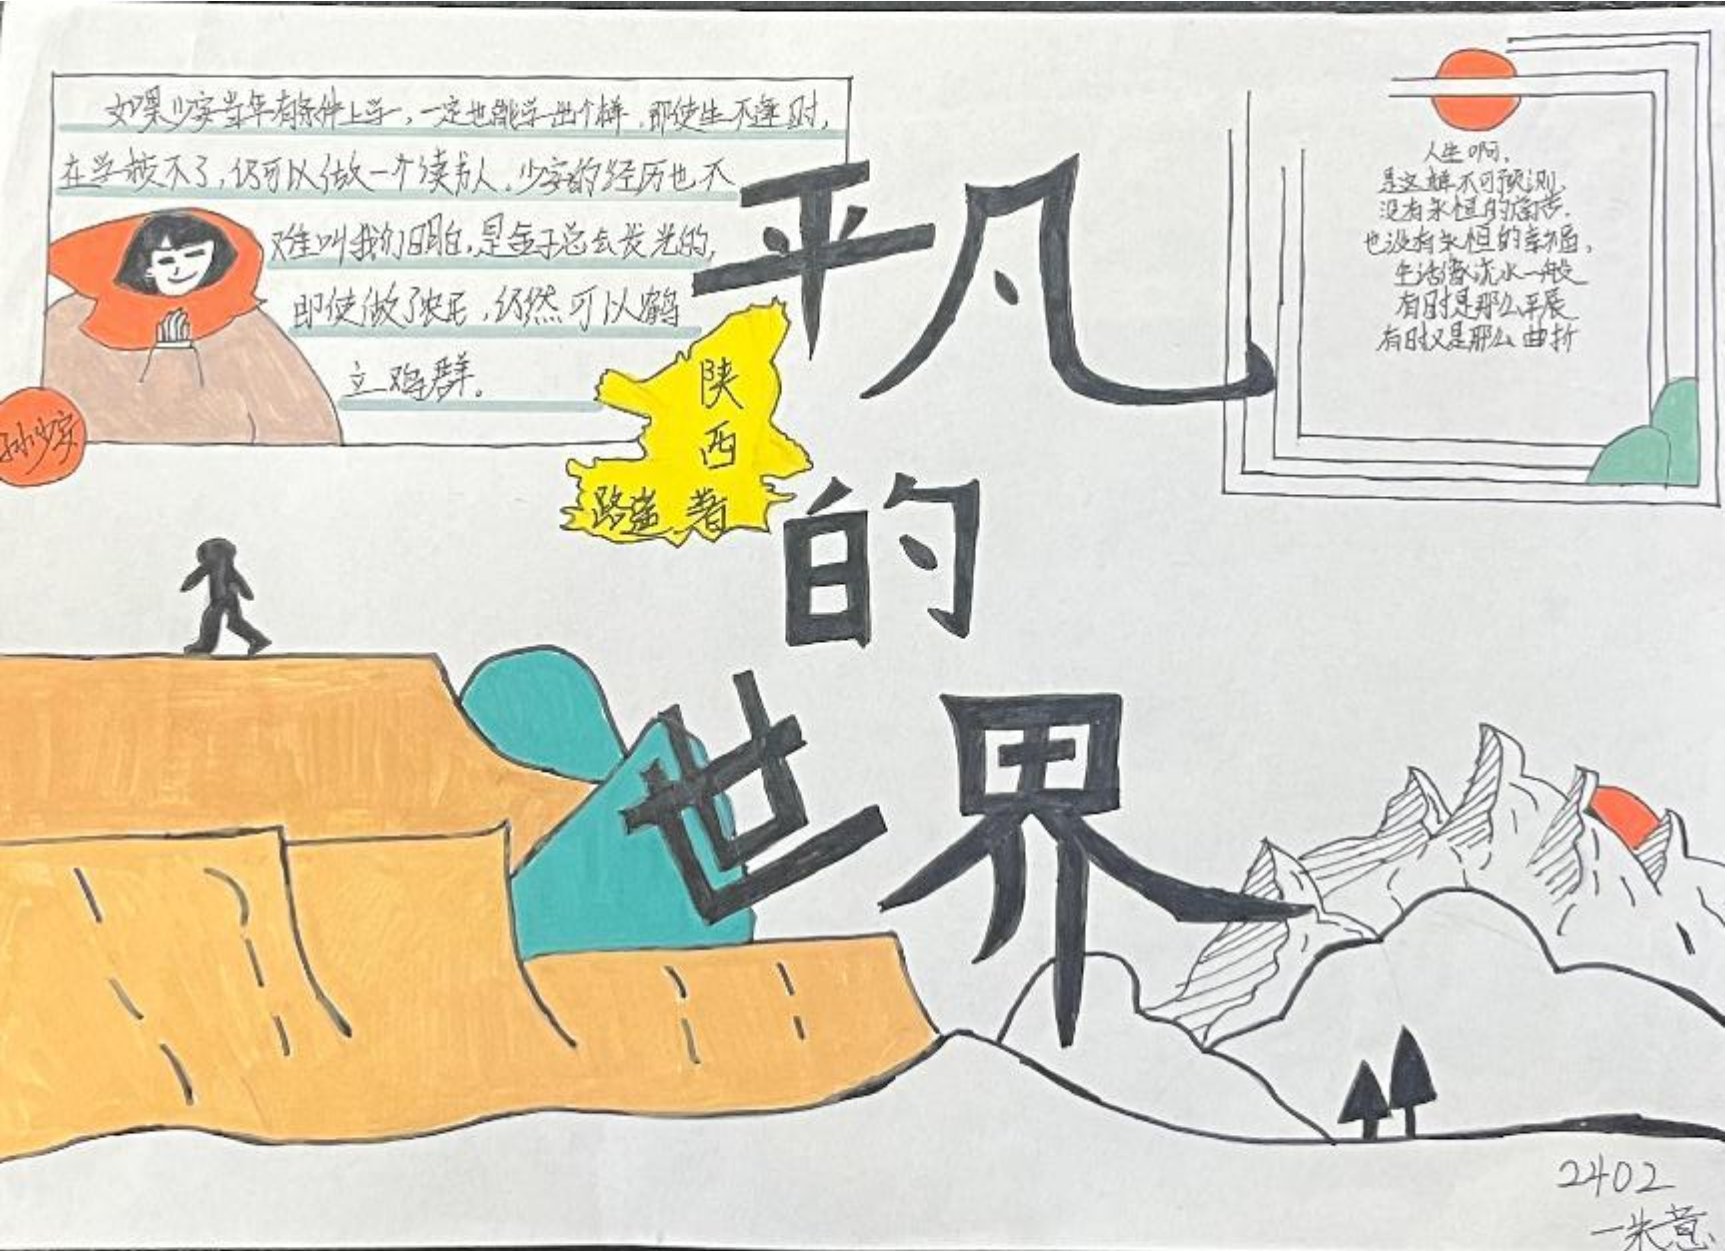 如果少安当年有条件上学，一定也能学出个样，即使生不逢时，
在学校不了，仍可以做一个读书人。少安的经历也不
难叫我们明白，是金子总会发光的，
即使做了农民，仍然可以鹤
立鸡群。
孙少安
陕
西
路遥 著
平凡
的
世界
人生啊，
是这样不可预测，
没有永恒的痛苦，
也没有永恒的幸福，
生活像流水一般
有时是那么平展
有时又是那么曲折
2402
一朱意